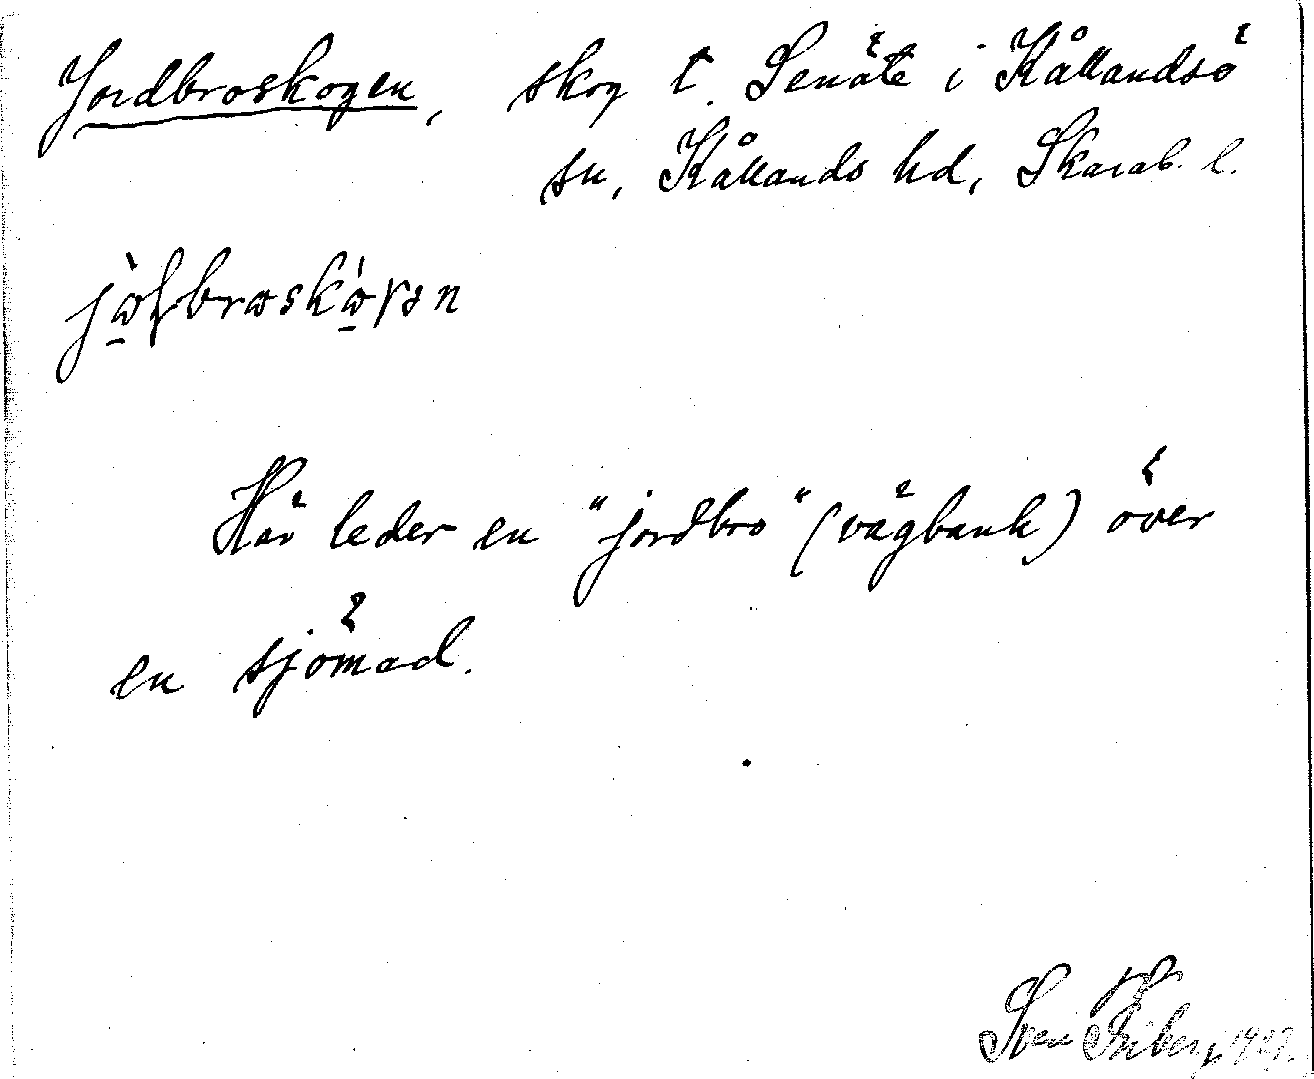 Jordbroskogen, skog t. Senäte i Kållandsö
sn, Kållands hd, Skarab. l.
Här leder en "jordbro" (vägbank) över
en sjömad.
Sven Friberg